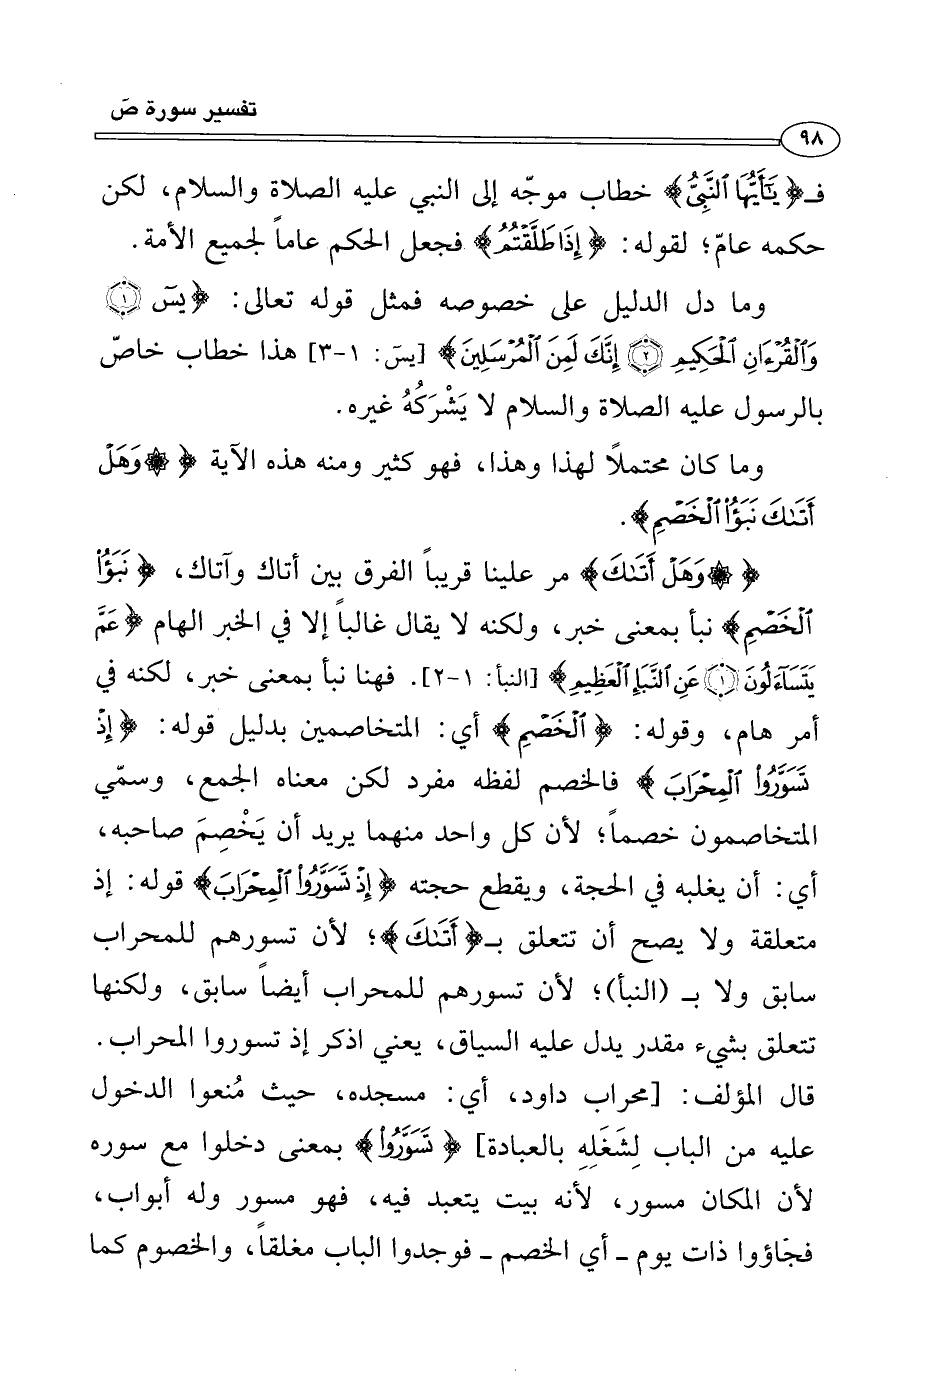 تفسير سورة صَ
٩٨
فـ﴿يَٰٓأَيُّهَا ٱلنَّبِيُّ﴾ خطاب موجّه إلى النبي عليه الصلاة والسلام، لكن
حكمه عامّ؛ لقوله: ﴿إِذَا طَلَّقْتُمُ﴾ فجعل الحكم عاماً لجميع الأمة.
وما دل الدليل على خصوصه فمثل قوله تعالى: ﴿يسٓ ۝١
وَٱلْقُرْءَانِ ٱلْحَكِيمِ ۝٢ إِنَّكَ لَمِنَ ٱلْمُرْسَلِينَ﴾ [يسَ: ١-٣] هذا خطاب خاصّ
بالرسول عليه الصلاة والسلام لا يَشْرَكُهُ غيره.
وما كان محتملاً لهذا وهذا، فهو كثير ومنه هذه الآية ﴿۞وَهَلْ
أَتَىٰكَ نَبَؤُا۟ ٱلْخَصْمِ﴾.
﴿۞وَهَلْ أَتَىٰكَ﴾ مر علينا قريباً الفرق بين أتاك وآتاك، ﴿نَبَؤُا۟
ٱلْخَصْمِ﴾ نبأ بمعنى خبر، ولكنه لا يقال غالباً إلا في الخبر الهام ﴿عَمَّ
يَتَسَآءَلُونَ ۝١ عَنِ ٱلنَّبَإِ ٱلْعَظِيمِ﴾ [النبأ: ١-٢]. فهنا نبأ بمعنى خبر، لكنه في
أمر هام، وقوله: ﴿ٱلْخَصْمِ﴾ أي: المتخاصمين بدليل قوله: ﴿إِذْ
تَسَوَّرُوا۟ ٱلْمِحْرَابَ﴾ فالخصم لفظه مفرد لكن معناه الجمع، وسمّي
المتخاصمون خصماً؛ لأن كل واحد منهما يريد أن يَخْصِمَ صاحبه،
أي: أن يغلبه في الحجة، ويقطع حجته ﴿إِذْ تَسَوَّرُوا۟ ٱلْمِحْرَابَ﴾ قوله: إذ
متعلقة ولا يصح أن تتعلق بـ﴿أَتَىٰكَ﴾؛ لأن تسورهم للمحراب
سابق ولا بـ (النبأ)؛ لأن تسورهم للمحراب أيضاً سابق، ولكنها
تتعلق بشيء مقدر يدل عليه السياق، يعني اذكر إذ تسوروا المحراب.
قال المؤلف: [محراب داود، أي: مسجده، حيث مُنعوا الدخول
عليه من الباب لِشَغَلِهِ بالعبادة] ﴿تَسَوَّرُوا۟﴾ بمعنى دخلوا مع سوره
لأن المكان مسور، لأنه بيت يتعبد فيه، فهو مسور وله أبواب،
فجَاؤوا ذات يوم ـ أي الخصم ـ فوجدوا الباب مغلقاً، والخصوم كما